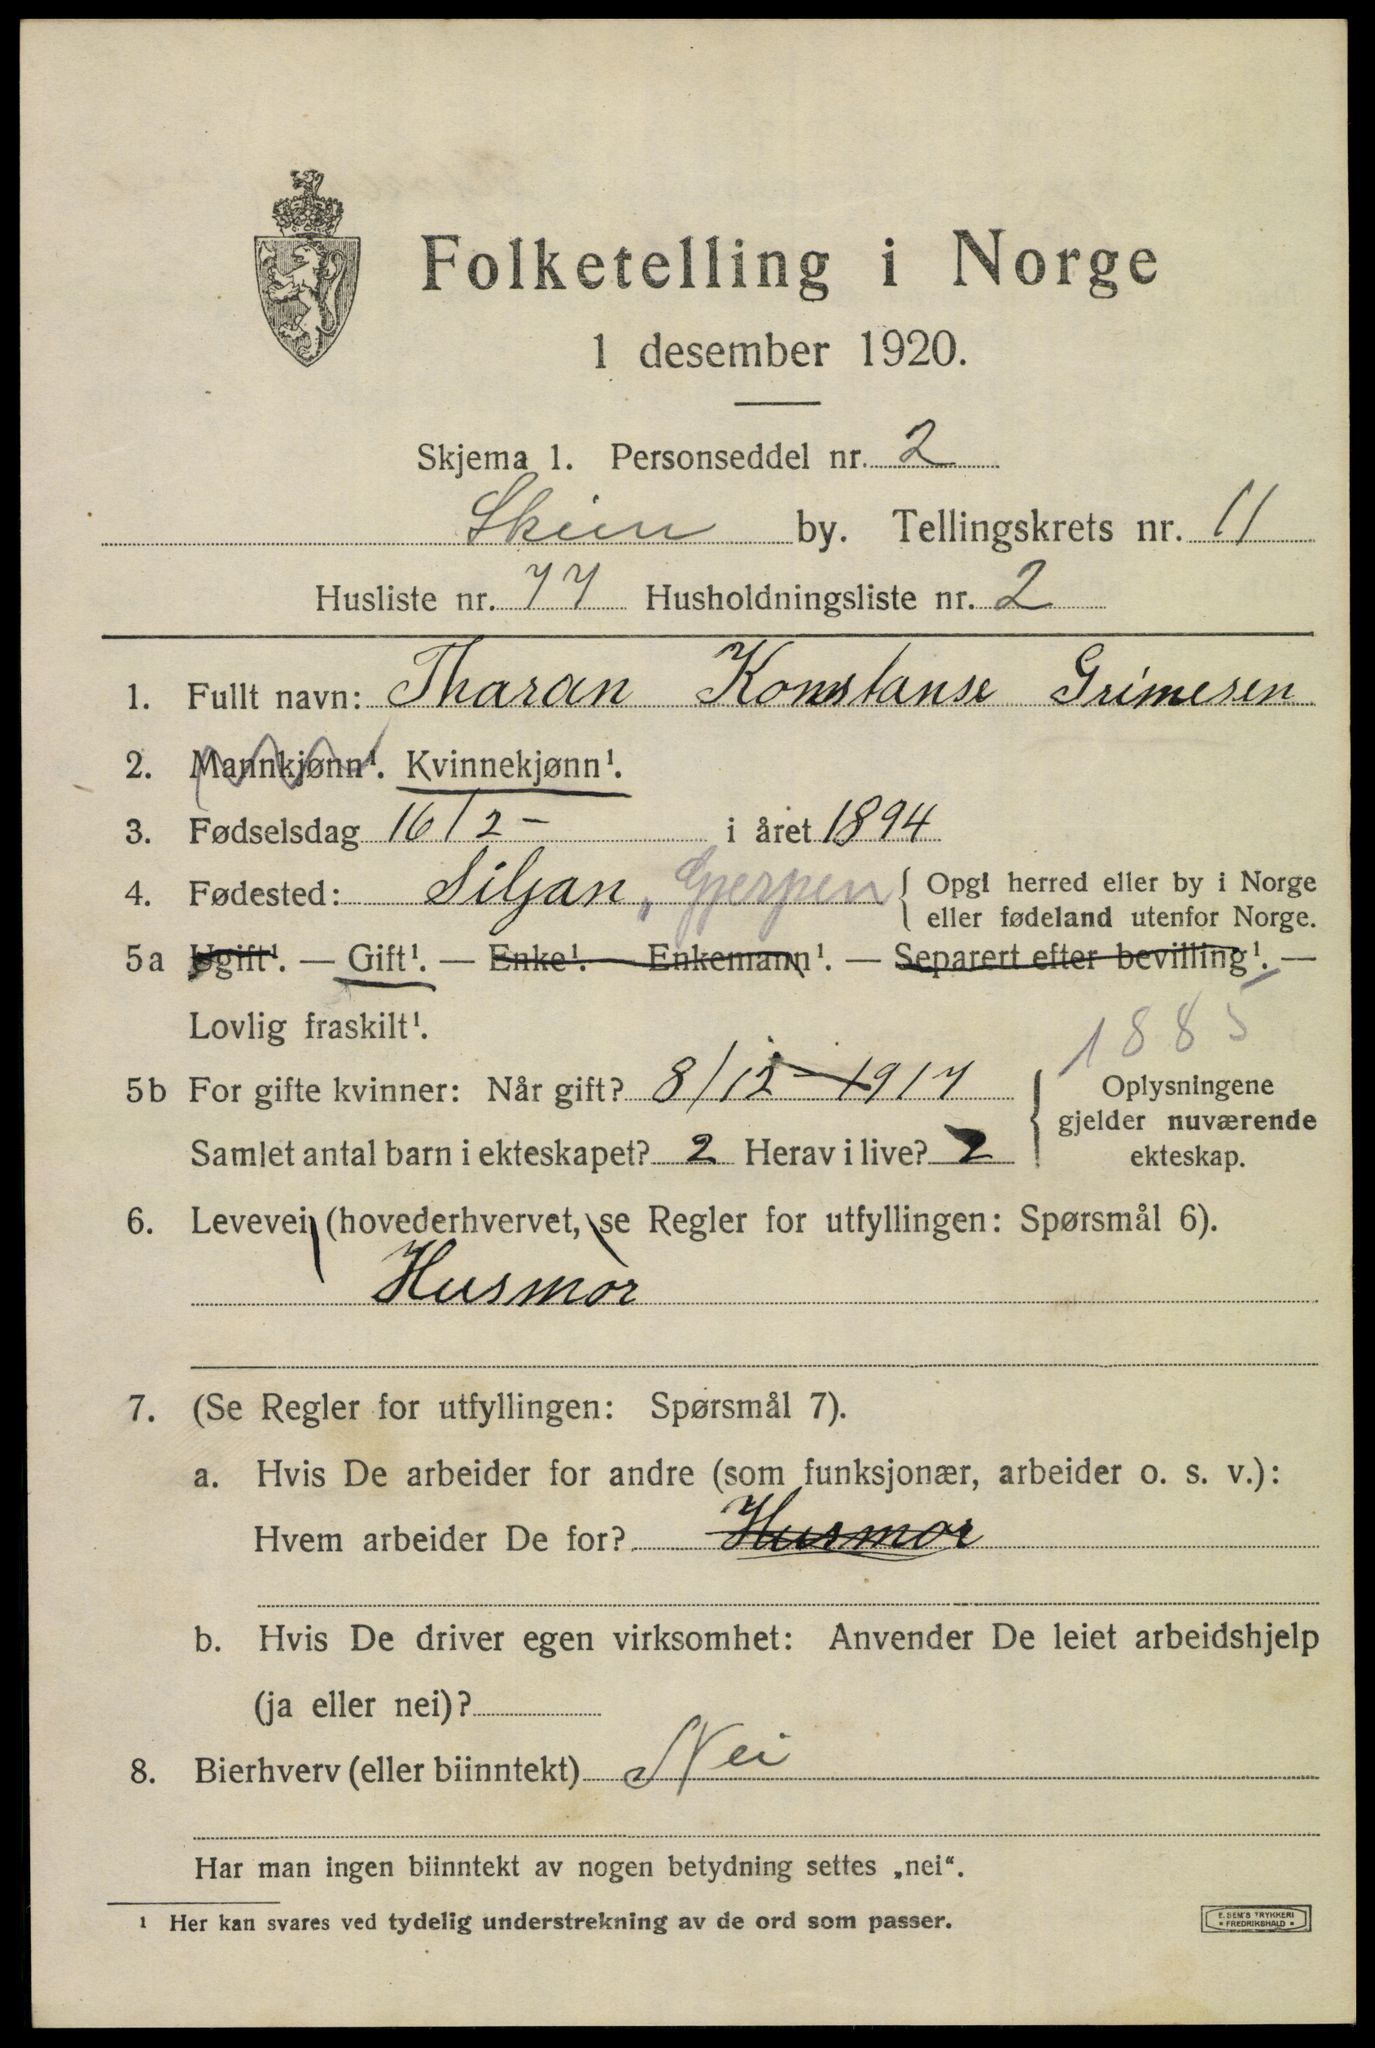 Folketelling i Norge
1 desember 1920.
Skjema 1. Personseddel nr. 2
Skien by. Tellingskrets nr. 11
Husliste nr. 77 Husholdningsliste nr. 2
1. Fullt navn: Tharan Konstanse Grimesen
2. Mannkjønn¹. Kvinnekjønn¹.
3. Fødselsdag 16/2 - i året 1894
4. Fødested: Siljan, Gjerpen { Opgi herred eller by i Norge
eller fødeland utenfor Norge.
5a Ugift¹. — Gift¹. — Enke¹. — Enkemann¹. — Separert efter bevilling¹. —
Lovlig fraskilt¹.
1885
5b For gifte kvinner: Når gift? 8/12 - 1917 { Oplysningene
gjelder nuværende
Samlet antal barn i ekteskapet? 2 Herav i live? 2 ekteskap.
6. Levevei (hovederhvervet, se Regler for utfyllingen: Spørsmål 6).
Husmor
7. (Se Regler for utfyllingen: Spørsmål 7).
a. Hvis De arbeider for andre (som funksjonær, arbeider o. s. v.):
Hvem arbeider De for? Husmor
b. Hvis De driver egen virksomhet: Anvender De leiet arbeidshjelp
(ja eller nei)?
8. Bierhverv (eller biinntekt) Nei
Har man ingen biinntekt av nogen betydning settes „nei“.
¹ Her kan svares ved tydelig understrekning av de ord som passer.
E. SEM'S TRYKKERI
• FREDRIKSHALD •